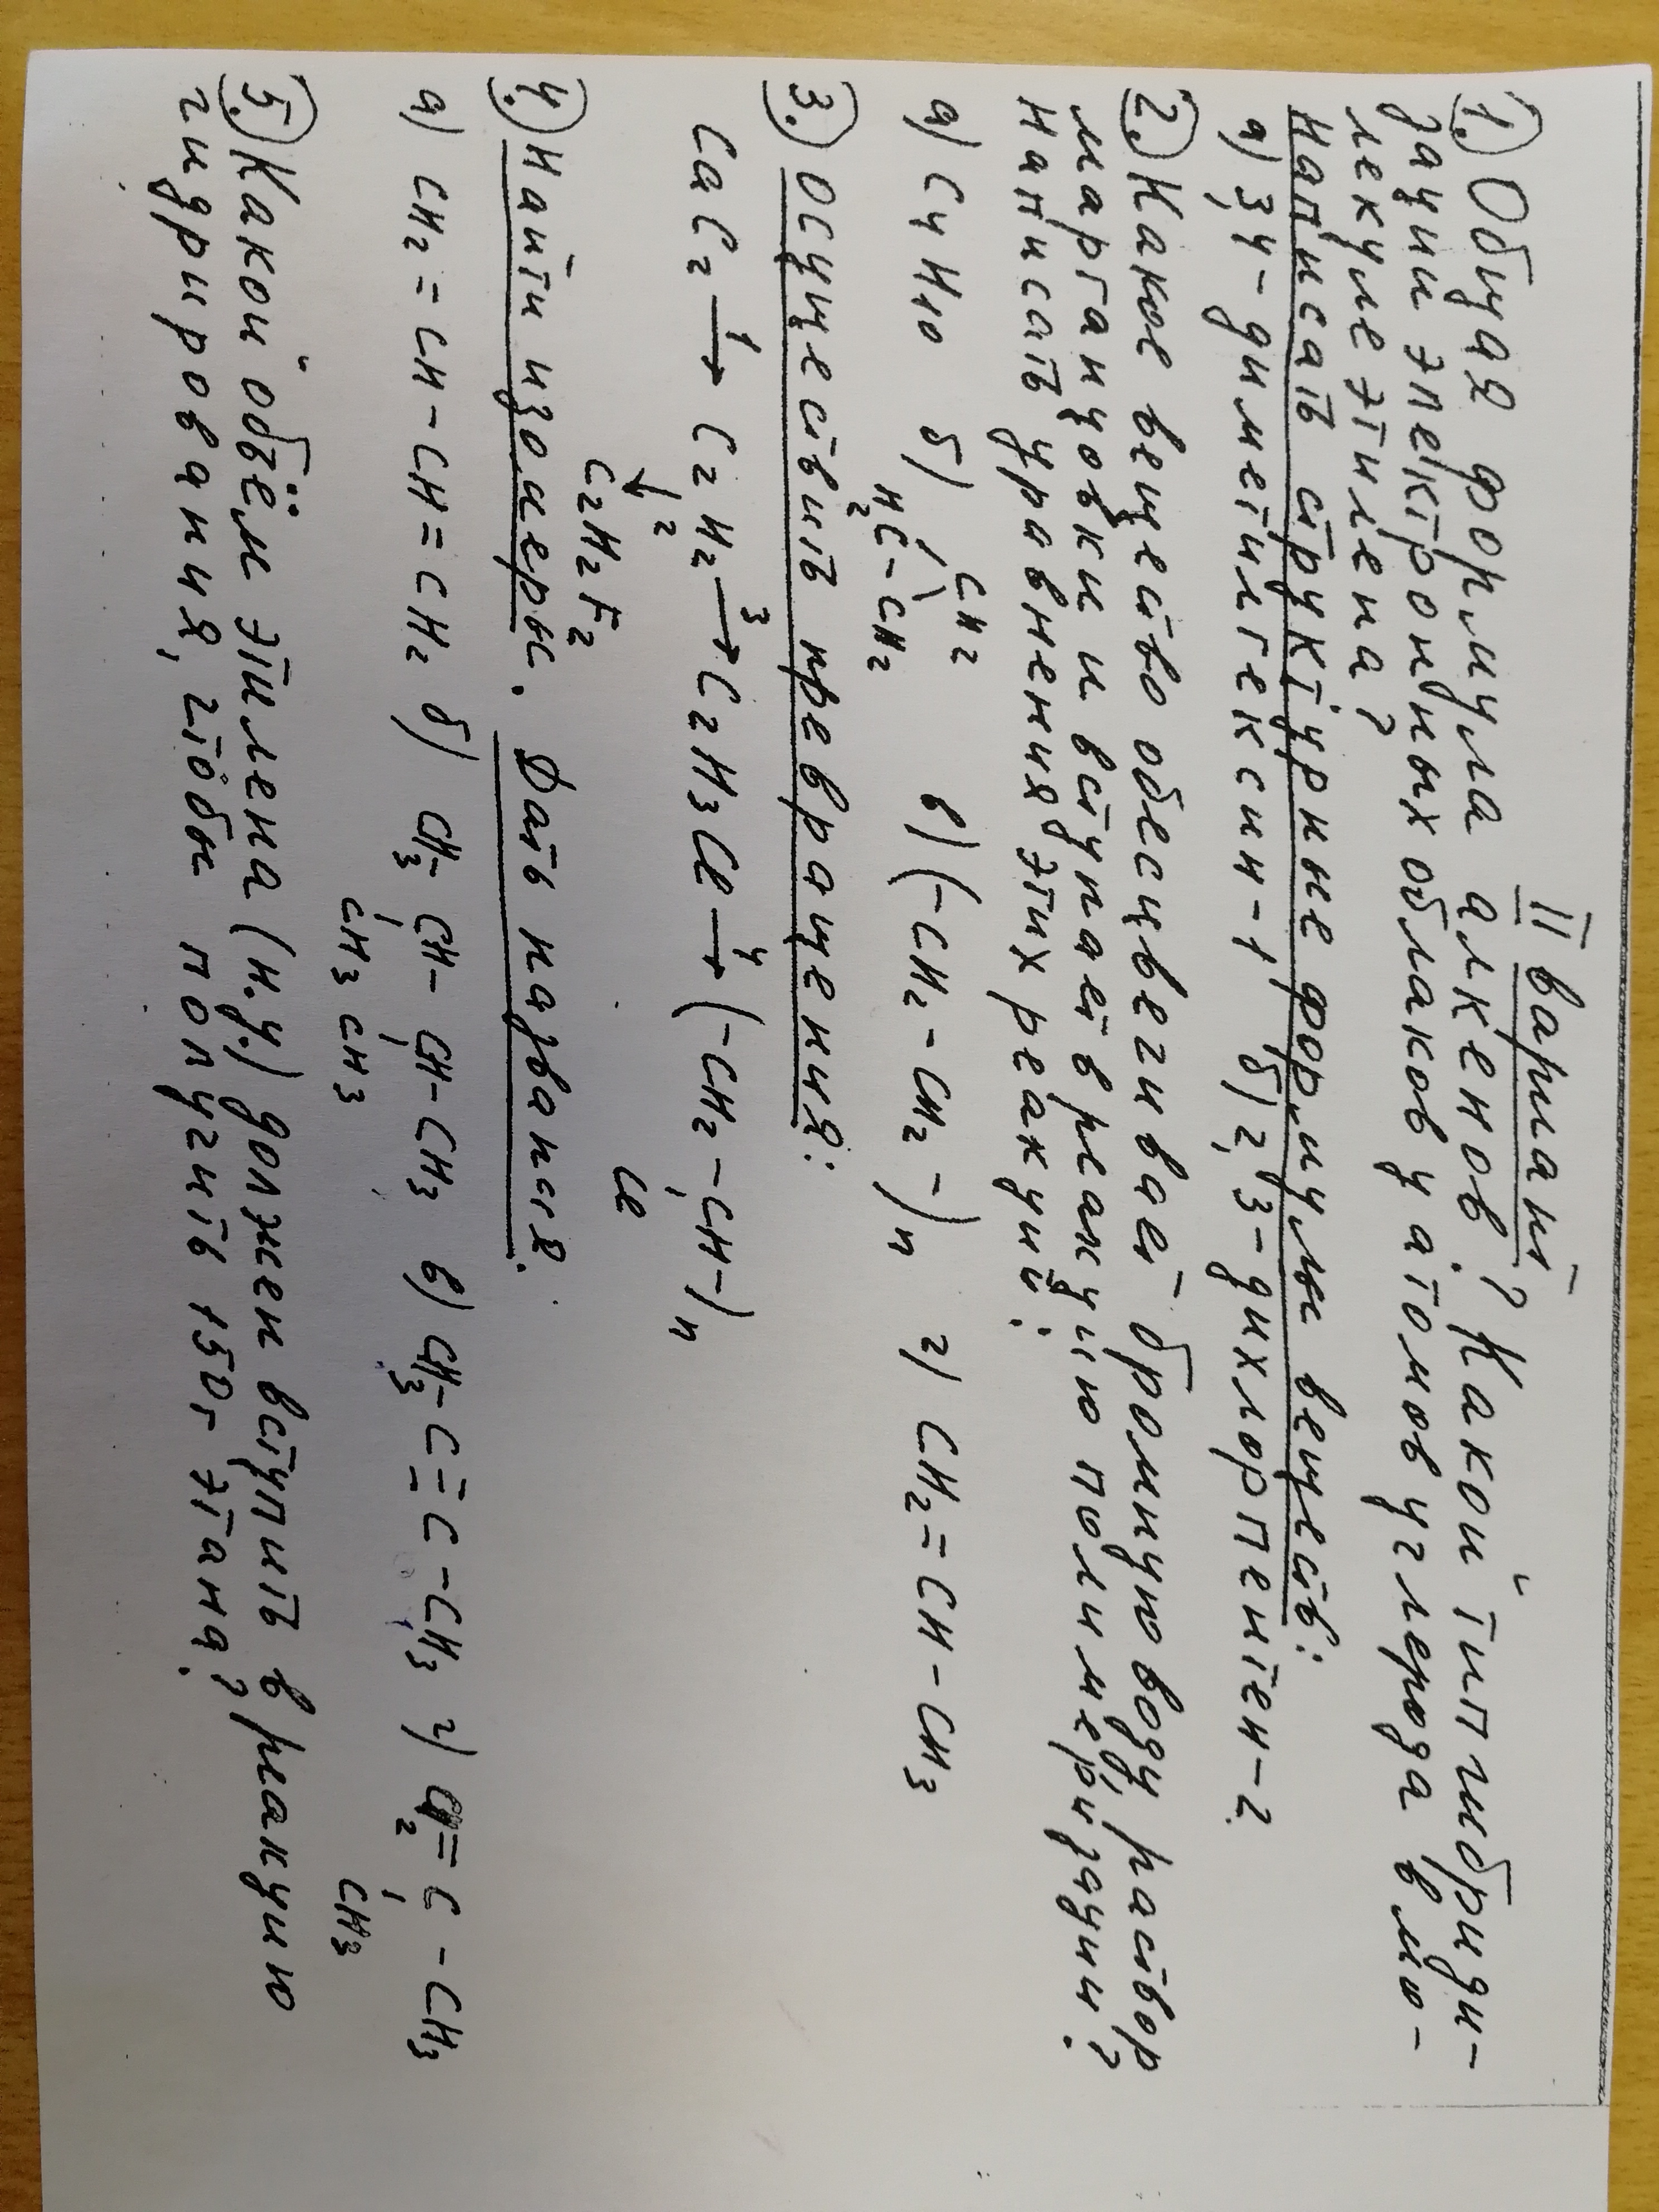 II вариант
1. Общая формула алкенов? Какой тип гибриди-
зации электронных облаков у атомов углерода в мо-
лекуле этилена?
Написать структурные формулы веществ:
а) 3,4-диметилгексин-1 б) 2,3-дихлорпентен-2
2. Какое вещество обесцвечивает бромную воду, раствор
марганцовки и вступает в реакцию полимеризации?
Написать уравнения этих реакций:
а) C4H10 б) CH2 в) (-CH2-CH2-)n г) CH2=CH-CH3
H2C-CH2
3. Осуществить превращения:
CaC2 1→ C2H2 3→ C2H3Cl 4→ (-CH2-CH-)n
↓2 Cl
C2H2F2
4. Найти изомеры. Дать названия.
а) CH2=CH-CH=CH2 б) CH3-CH-CH-CH3 в) CH3-C≡C-CH3 г) C2=C-CH3
CH3 CH3 CH3
5. Какой объём этилена (н.у.) должен вступить в реакцию
гидрирования, чтобы получить 150г этана?